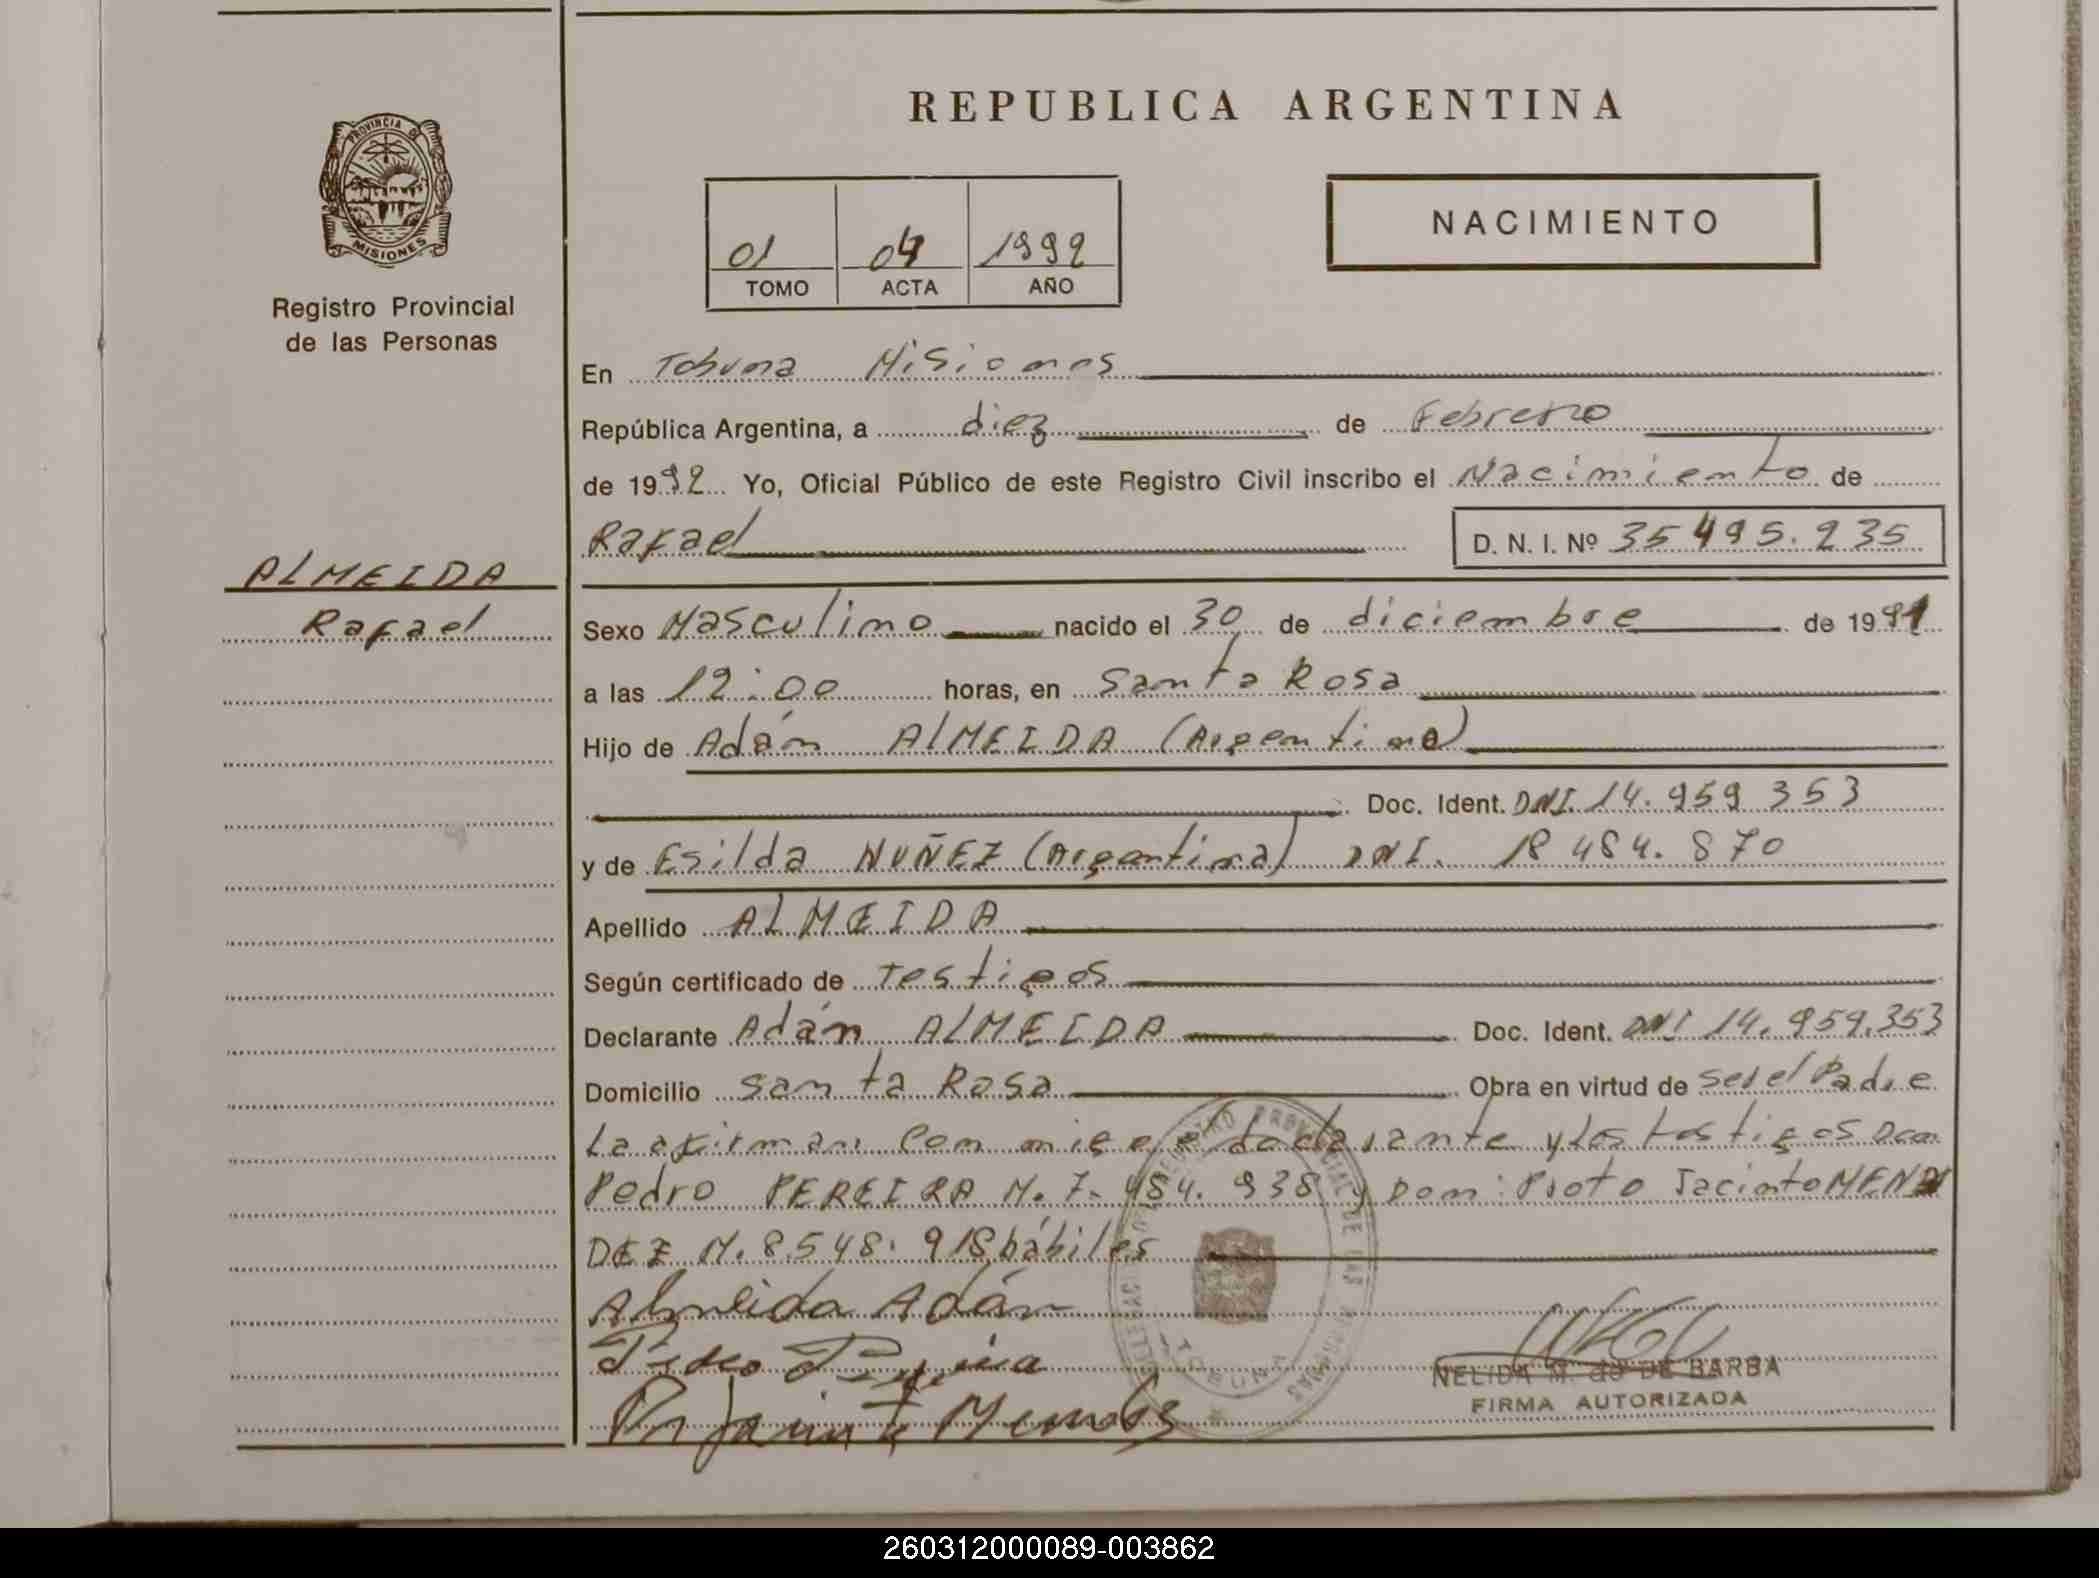 REPUBLICA ARGENTINA
PROVINCIA DE
MISIONES
Registro Provincial
de las Personas
01 04 1992
TOMO ACTA AÑO
NACIMIENTO
En Tobuna Misiones
República Argentina, a diez de Febrero
de 1992 Yo, Oficial Público de este Registro Civil inscribo el Nacimiento de
Rafael D. N. I. Nº 35 495.235
ALMEIDA
Rafael
Sexo Masculino nacido el 30 de diciembre de 1991
a las 12:00 horas, en Santa Rosa
Hijo de Adán ALMEIDA (Argentino)
Doc. Ident. DNI. 14.959 353
y de Esilda NUÑEZ (Argentina) DNI. 18 484.870
Apellido ALMEIDA
Según certificado de Testigos
Declarante Adán ALMEIDA Doc. Ident. DNI 14.959.353
Domicilio Santa Rosa Obra en virtud de ser el Padre
La afirman Conmigo e declarante y los testigos Don
Pedro PEREIRA M. 7. 484. 938 y Don: Proto Jacinto MEN
DEZ M. 8.548. 918 hábiles
Almeida Adán
Pedro Pereira
Pr Jacinto Mendez
REGISTRO PROVINCIAL DE LAS PERSONAS
TOBUNA
NELIDA M. DE BARBA
FIRMA AUTORIZADA
260312000089-003862